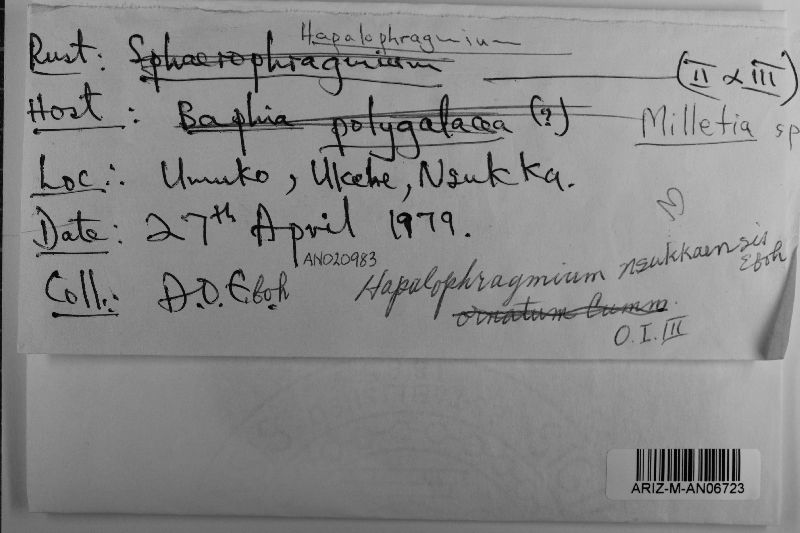 Hapalophragmium
Rust: Sphaerophragmium (II & III)
Host: Baphia polygalacea (?) Milletia sp
Loc.: Umuko, Ukehe, Nsukka.
Date: 27th April 1979.
AN020983
Coll.: D.O. Eboh Hapalophragmium nsukkaensis Eboh
ornatum Cumm.
O.I.III
ARIZ-M-AN06723